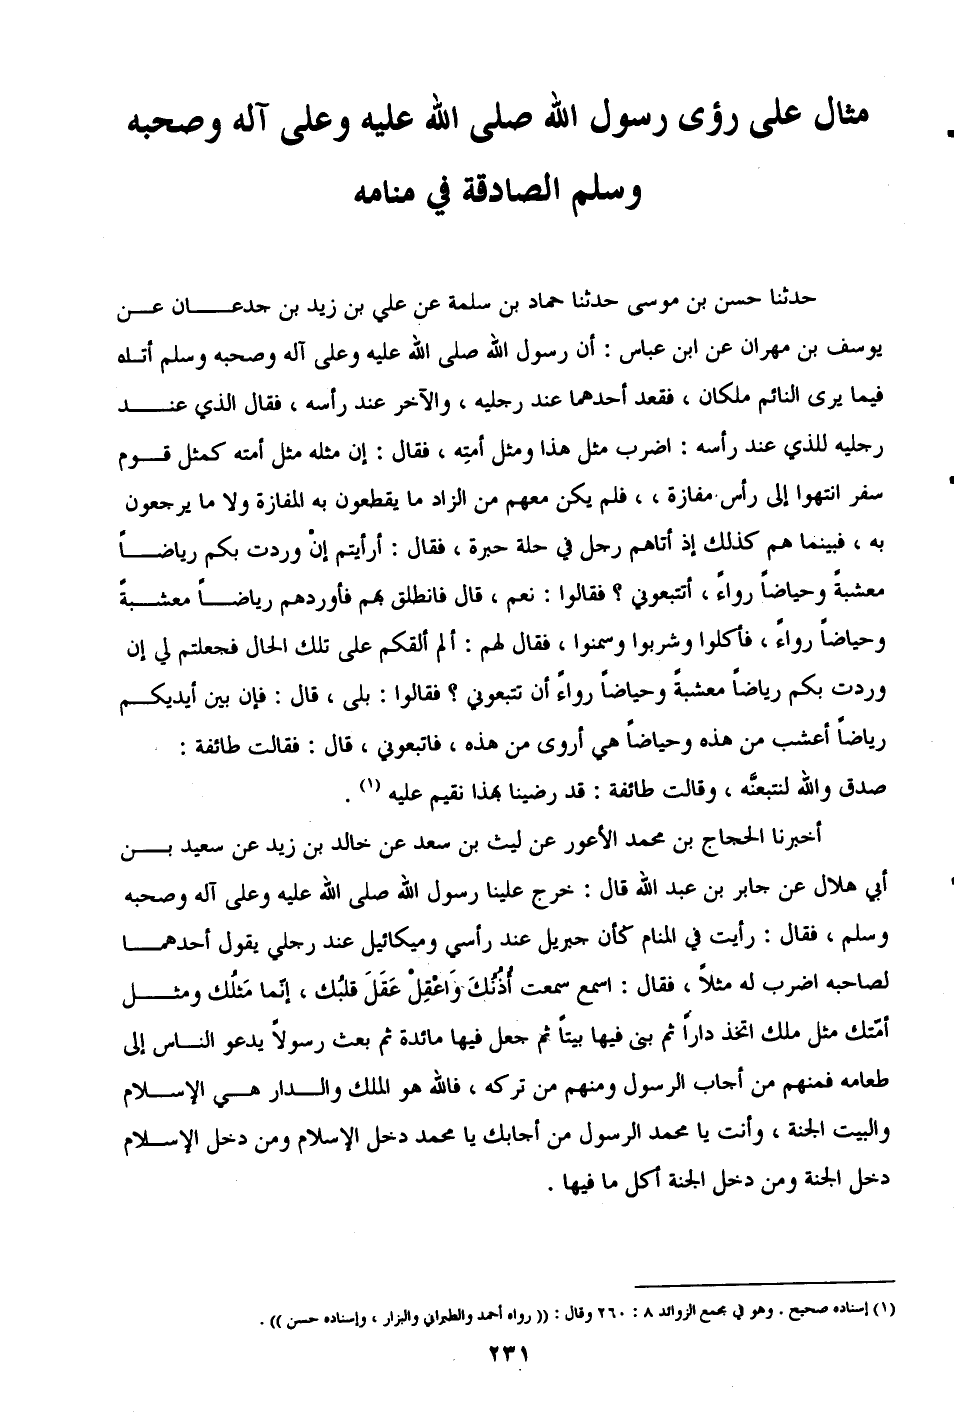 مثال على رؤى رسول الله صلى الله عليه وعلى آله وصحبه
وسلم الصادقة في منامه
حدثنا حسن بن موسى حدثنا حماد بن سلمة عن علي بن زيد بن جدعـــــان عـــن
يوسف بن مهران عن ابن عباس : أن رسول الله صلى الله عليه وعلى آله وصحبه وسلم أتـاه
فيما يرى النائم ملكان ، فقعد أحدهما عند رجليه ، والآخر عند رأسه ، فقال الذي عنـــد
رجليه للذي عند رأسه : اضرب مثل هذا ومثل أمتِه ، فقال : إن مثله مثل أمته كمثل قـــوم
سفر انتهوا إلى رأس مفازة ، ، فلم يكن معهم من الزاد ما يقطعون به المفازة ولا ما يرجعون
به ، فبينما هم كذلك إذ أتاهم رجل في حلة حبرة ، فقال : أرأيتم إنْ وردت بكم رياضـــاً
معشبةً وحياضاً رواءً ، أتتبعوني ؟ فقالوا : نعم ، قال فانطلق بهم فأوردهم رياضـــاً معشـــبةً
وحياضاً رواءً ، فأكلوا وشربوا وسمنوا ، فقال لهم : ألم ألقكم على تلك الحال فجعلتم لي إن
وردت بكم رياضاً معشبةً وحياضاً رواءً أن تتبعوني ؟ فقالوا : بلى ، قال : فإن بين أيديكــم
رياضاً أعشب من هذه وحياضاً هي أروى من هذه ، فاتبعوني ، قال : فقالت طائفة :
صدق والله لنتبعنَّه ، وقالت طائفة : قد رضينا بهذا نقيم عليه (١) .
أخبرنا الحجاج بن محمد الأعور عن ليث بن سعد عن خالد بن زيد عن سعيد بـــن
أبي هلال عن جابر بن عبد الله قال : خرج علينا رسول الله صلى الله عليه وعلى آله وصحبه
وسلم ، فقال : رأيت في المنام كأن جبريل عند رأسي وميكائيل عند رجلي يقول أحدهمـــا
لصاحبه اضرب له مثلاً ، فقال : اسمع سمعت أُذُنُكَ وَاعْقِلْ عَقَلَ قلبُك ، إنّما مَثلُك ومثـــل
أمّتك مثل ملك اتخذ داراً ثم بنى فيها بيتاً ثم جعل فيها مائدة ثم بعث رسولاً يدعو النــاس إلى
طعامه فمنهم من أجاب الرسول ومنهم من تركه ، فالله هو الملك والـــدار هـــي الإســـلام
والبيت الجنة ، وأنت يا محمد الرسول من أجابك يا محمد دخل الإسلام ومن دخل الإســـلام
دخل الجنة ومن دخل الجنة أكل ما فيها .
(١) إسناده صحيح . وهو في مجمع الزوائد ٨ : ٢٦٠ وقال : (( رواه أحمد والطبراني والبزار ، وإسناده حسن )) .
٢٣١